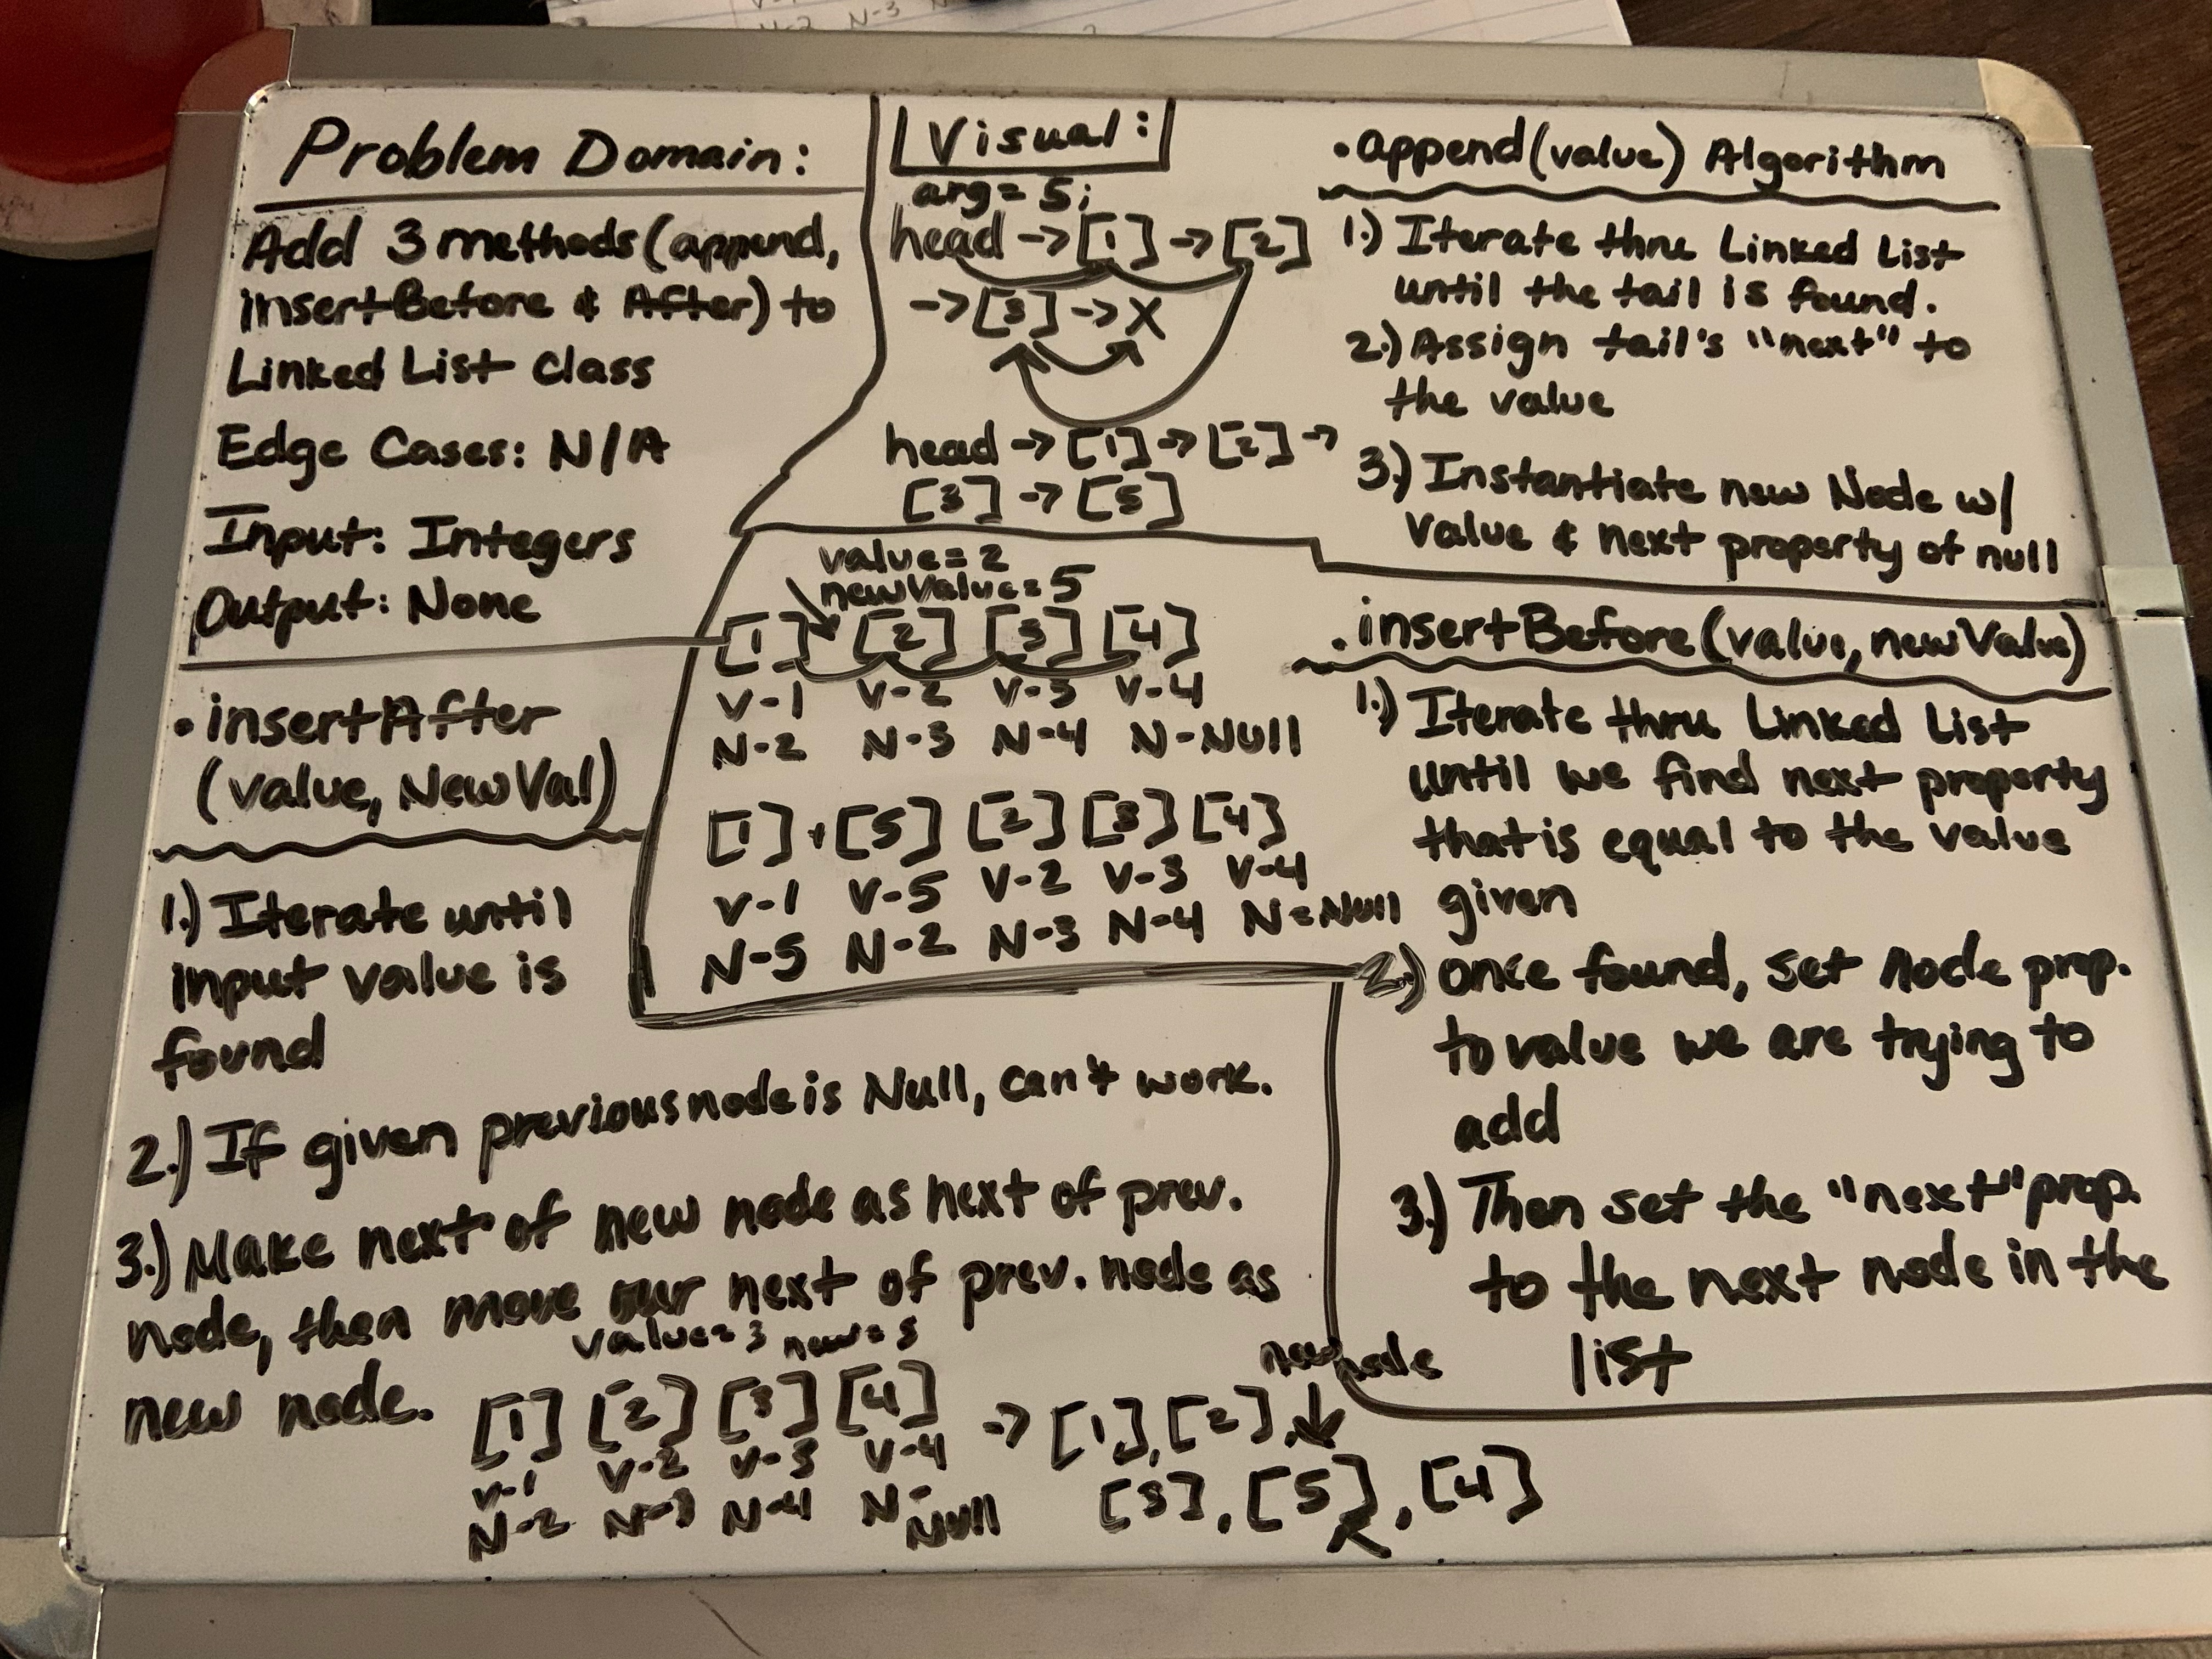 Problem Domain:
Add 3 methods (append,
insertBefore & After) to
Linked List class
Edge Cases: N/A
Input: Integers
Output: None
Visual:
arg = 5;
head -> [1] -> [2]
-> [3] -> X
head -> [1] -> [2] ->
[3] -> [5]
• append(value) Algorithm
1.) Iterate thru Linked List
until the tail is found.
2.) Assign tail's "next" to
the value
3.) Instantiate new Node w/
value & next property of null
value = 2
newValue = 5
[1] [2] [3] [4]
V-1 V-2 V-3 V-4
N-2 N-3 N-4 N-Null
[1] [5] [2] [3] [4]
V-1 V-5 V-2 V-3 V-4
N-5 N-2 N-3 N-4 N=Null
• insertBefore(value, newValue)
1.) Iterate thru Linked List
until we find next property
that is equal to the value
given
2.) once found, set node prop.
to value we are trying to
add
3.) Then set the "next" prop.
to the next node in the
list
• insertAfter
(value, NewVal)
1.) Iterate until
input value is
found
2.) If given previous node is Null, can't work.
3.) Make next of new node as next of prev.
node, then move our next of prev. node as
new node.
value = 3 new = 5
[1] [2] [3] [4]
V-1 V-2 V-3 V-4
N-2 N-3 N-4 N-Null
new node
-> [1], [2],
[3], [5], [4]